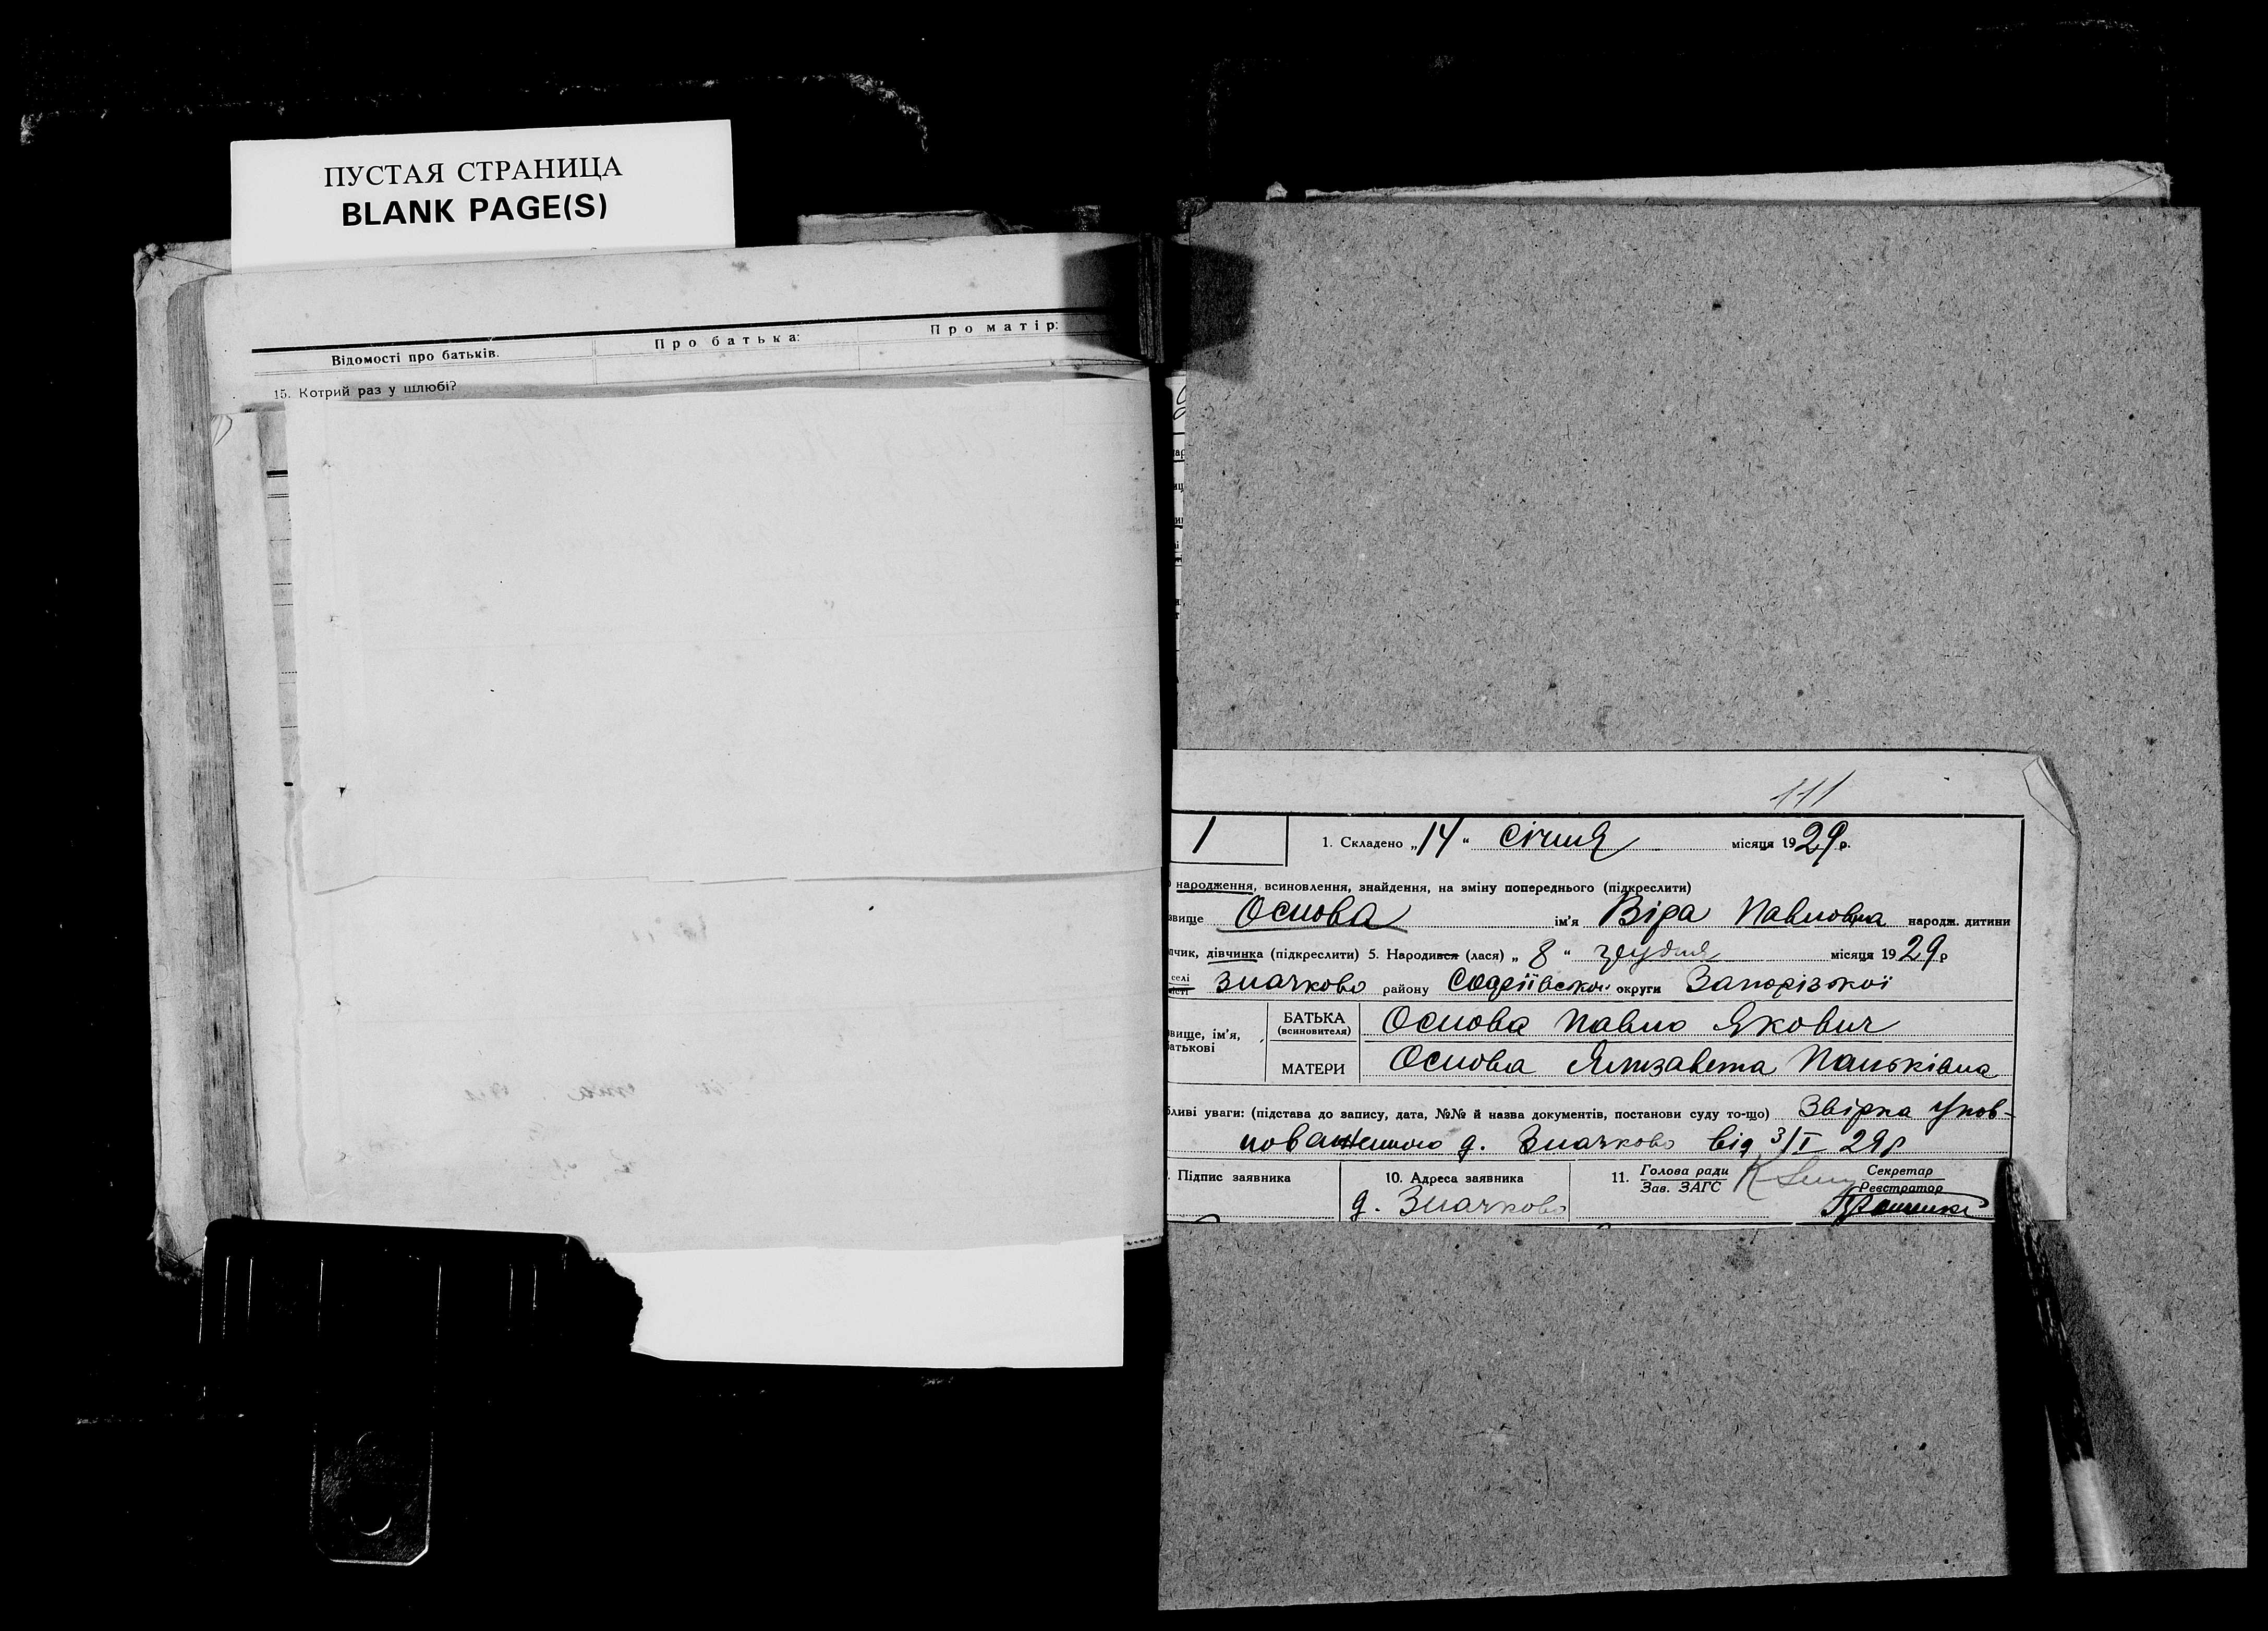 ПУСТАЯ СТРАНИЦА
BLANK PAGE(S)
Відомості про батьків. Про батька: Про матір:
15. Котрий раз у шлюбі?
111
1 1. Складено „14“ січня місяця 1929 р.
народження, всиновлення, знайдення, на зміну попереднього (підкреслити)
звище Основа ім'я Віра Павловна народж. дитини
пчик, дівчинка (підкреслити) 5. Народився (лася) „8“ грудня місяця 1929 р
селі Значково району Софіївської округи Запорізької
БАТЬКА
(всиновителя) Основа Павло Якович
звище, ім'я,
батькові
МАТЕРИ Основа Ялизавета Панськівна
бливі уваги: (підстава до запису, дата, №№ й назва документів, постанови суду то-що) Звірка Упов-
новаженного д. Значково від 3/I 29р
Підпис заявника 10. Адреса заявника 11. Голова ради Секретар
Зав. ЗАГС Реєстратор
д. Значково